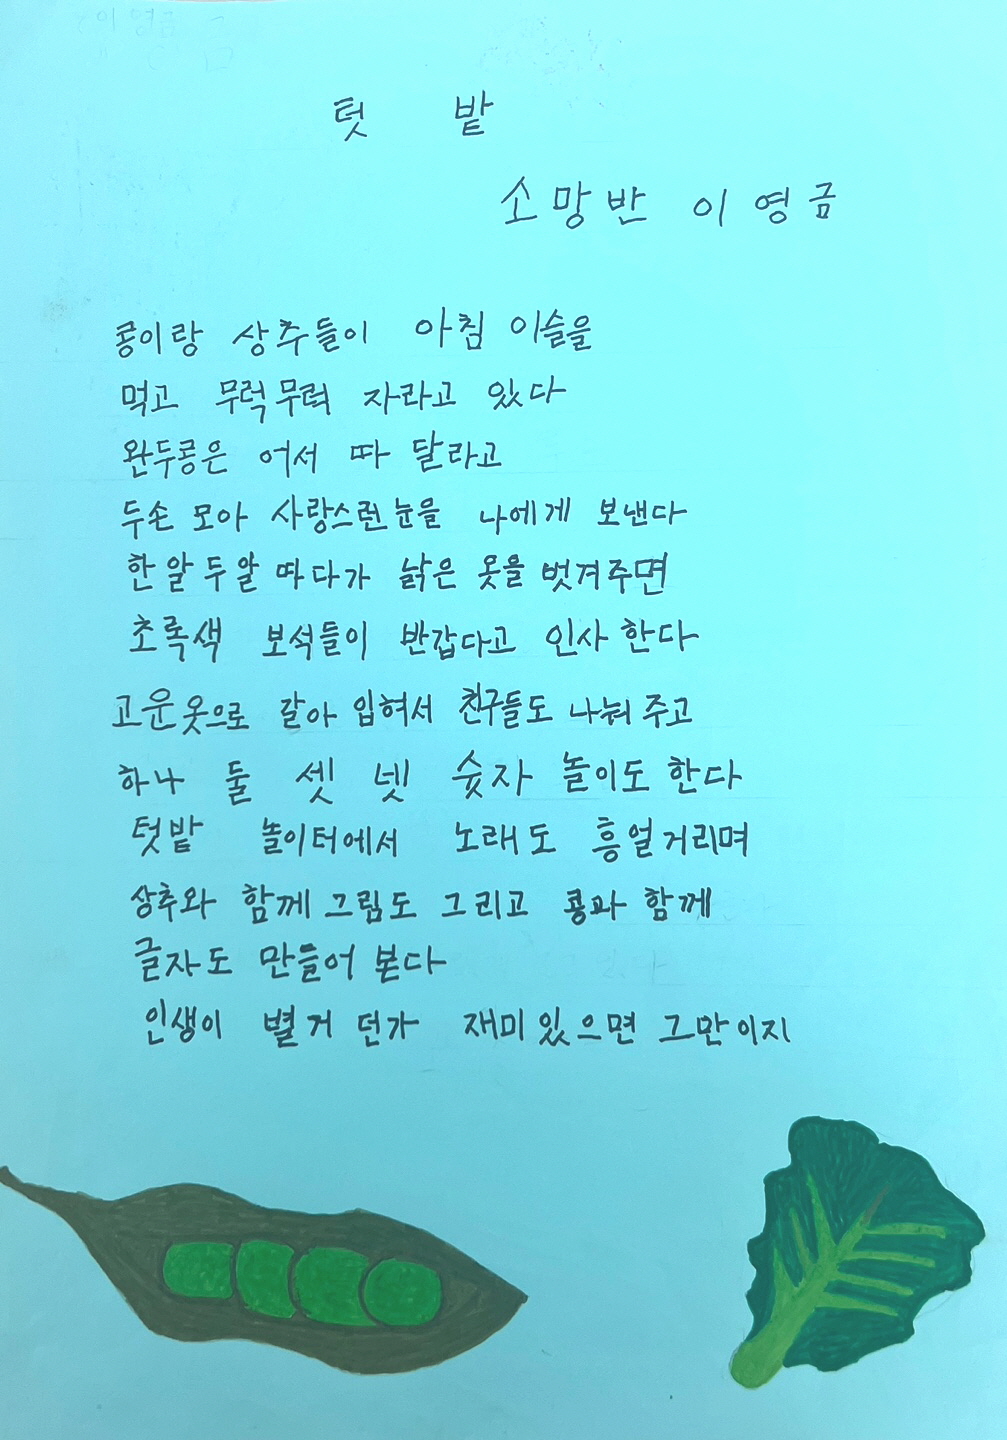 텃 밭
소망반 이영금
콩이랑 상추들이 아침 이슬을
먹고 무럭무럭 자라고 있다
완두콩은 어서 따 달라고
두손 모아 사랑스런눈을 나에게 보낸다
한알두알 따다가 낡은 옷을 벗겨주면
초록색 보석들이 반갑다고 인사 한다
고운옷으로 갈아 입혀서 친구들도 나눠 주고
하나 둘 셋 넷 숫자 놀이도 한다
텃밭 놀이터에서 노래도 흥얼거리며
상추와 함께 그림도 그리고 콩과 함께
글자도 만들어 본다
인생이 별거 던가 재미있으면 그만이지